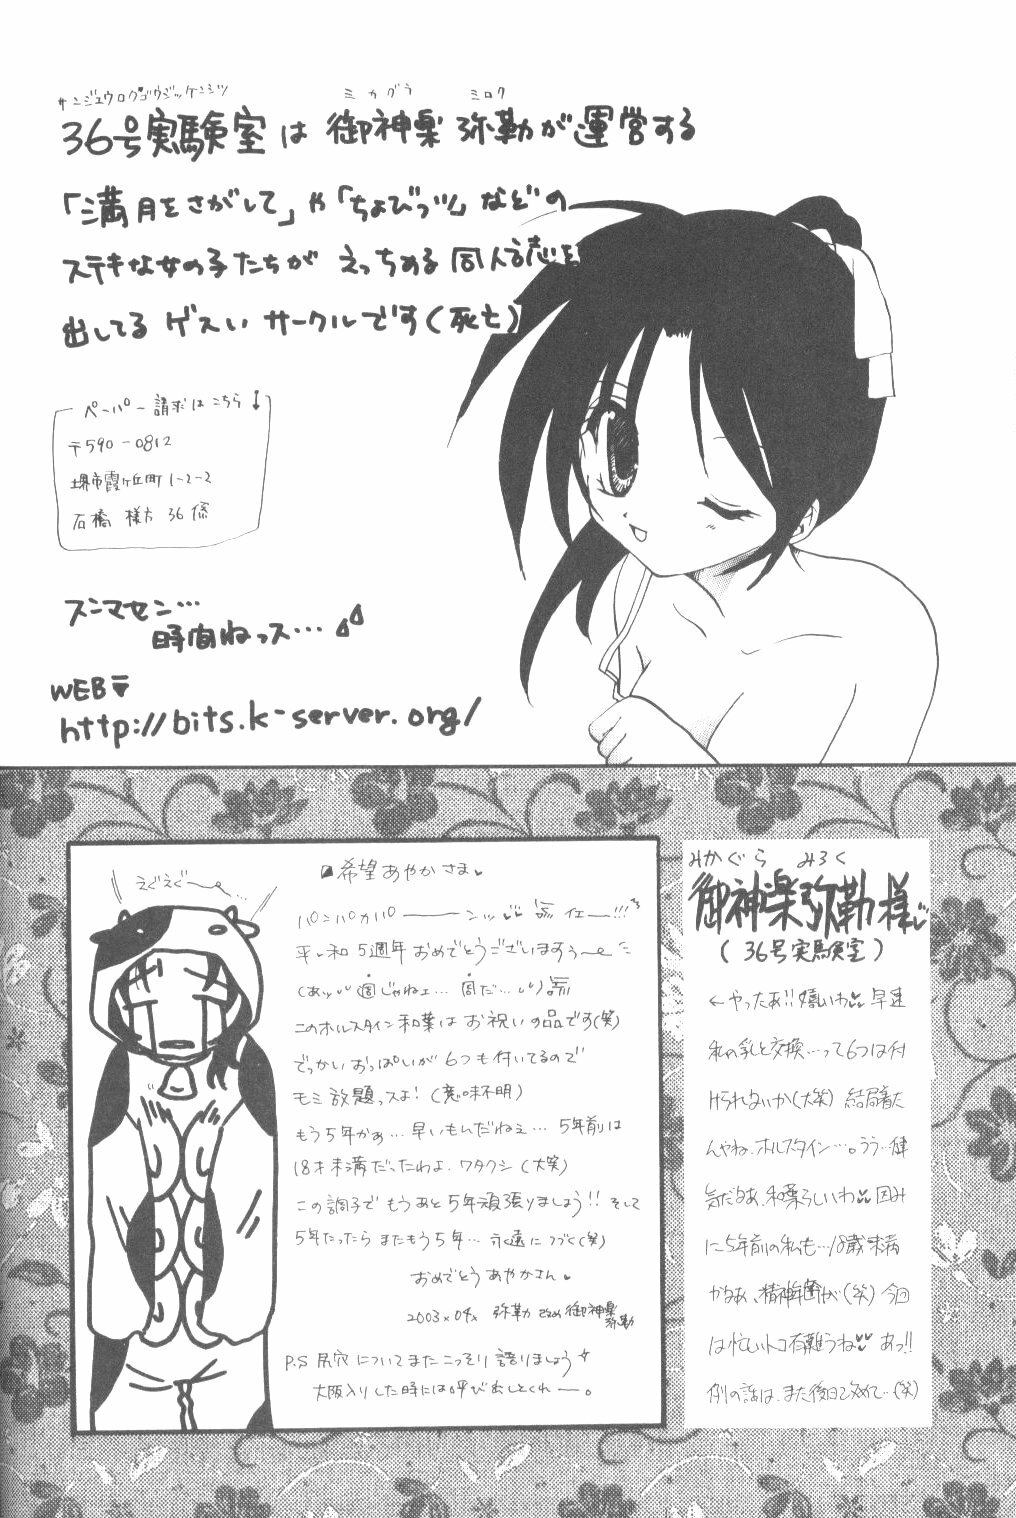 サンジュウロクゴウジッケンシツ
ミカグラ ミロク
36号実験室は 御神楽 弥勒が運営する
「満月をさがして」や「ちょびっツ」などの
ステキな女の子たちが えっちめる 同人誌を
出してる ゲスい サークルです(死亡)
ペーパー請求はこちら↓
〒590-0812
堺市霞ヶ丘町1-2-2
石橋 様方 36係
スンマセン…
時間ねっス…
WEB
http://bits.k-server.org/
えぐえぐ〜。
希望あやかさま
パンパカパーーンッ イェー!!!
平和5週年おめでとうございますぅ〜
(あッ 週じゃねェ… 周だ…)
このホルスタイン和葉はお祝いの品です(笑)
でっかいおっぱいが6つも付いてるので
モミ放題っスよ!(意味不明)
もう5年かぁ…早いもんだねぇ…5年前は
18才未満だったわよ、ワタクシ(大笑)
この調子でもうあと5年頑張りましょう!!そして
5年たったらまたもう5年…永遠につづく(笑)
おめでとうあやかさん
2003x04x 弥勒 改め御神楽弥勒
P.S 尻穴についてまたこっそり語りましょう
大阪入りした時には呼び出しとくれー。
みかぐら みろく
御神楽弥勒様
(36号実験室)
←やったあ!!嬉しいわ 早速
私の乳と交換…って6つは付
けられないか(大笑)結局着た
んやね、ホルスタイン…。うう…健
気だなあ、和葉らしいわ 因み
に5年前の私も…18歳未満
かなあ、精神年齢が(笑)今回
は忙しいトコ有難うね あっ!!
例の話は、また後日改めて…(笑)